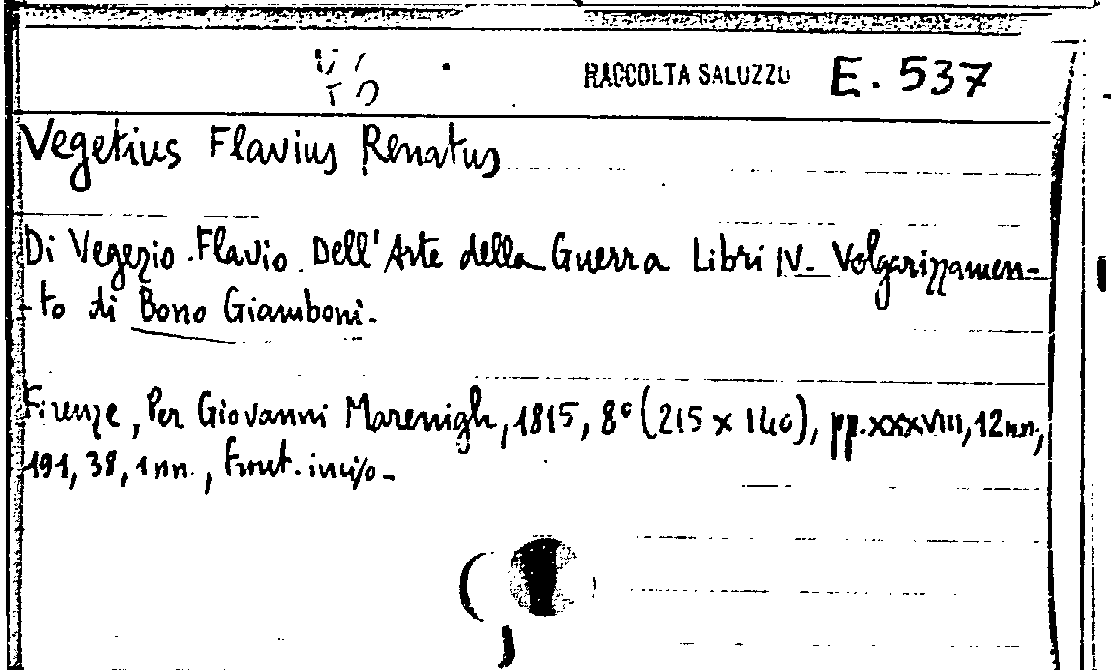 RACCOLTA SALUZZO E. 537
Vegetius Flavius Renatus
Di Vegezio Flavio Dell'Arte della Guerra Libri IV. Volgarizzamen-
to di Bono Giamboni.
Firenze, Per Giovanni Marenigh, 1815, 8° (215 x 140), pp. XXXVIII, 12 n.n.,
191, 38, 1 nn., front. inciso.